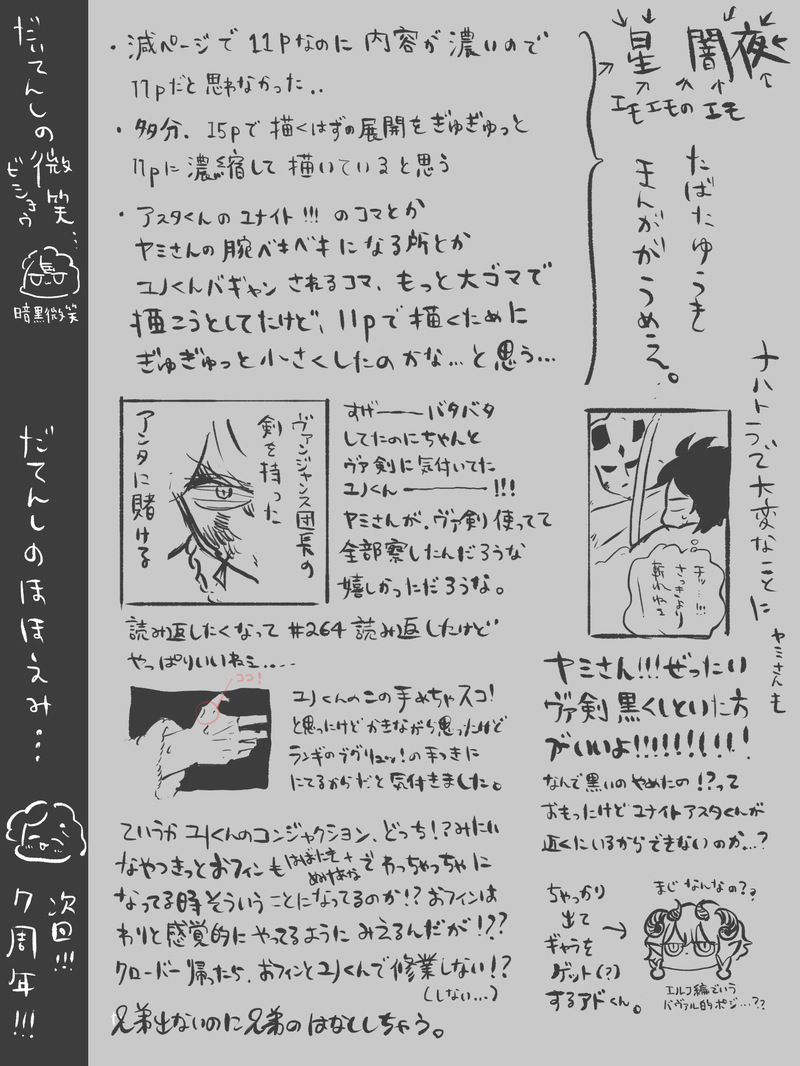 だいてんしの微笑…
ビショウ
暗黒微笑
だてんしのほほえみ…
次回!!!
7周年!!!
星 闇 夜
エモエモの エモ
たばたゆうき
まんががうめえ。
・減ページで 11Pなのに 内容が 濃いので
11pだと思わなかった..
・多分、15pで 描くはずの展開をぎゅぎゅっと
11pに 濃縮して 描いていると思う
・アスタくんの ユナイト!!! のコマとか
ヤミさんの腕ベキベキになる所とか
ユノくんバギャン されるコマ、もっと大ゴマで
描こうとしてたけど、11pで描くために
ぎゅぎゅっと小さくしたのかな…と思う…
ナハトうで大変なことに
ヤミさんも
チッ…!!!
さっきより
斬れねェ
ヤミさん!!!ぜったい
ヴァ剣 黒くしといた方
がいいよ!!!!!!!!!
なんで黒いの やめたの!?って
おもったけど ユナイトアスタくんが
近くにいるからできないのか…?
ヴァンジャンス団長の
剣を持った
アンタに賭ける
すげーーバタバタ
してたのにちゃんと
ヴァ剣に気付いてた
ユノくんーーー!!!
ヤミさんが、ヴァ剣 使ってて
全部察したんだろうな
嬉しかっただろうな。
読み返したくなって #264 読み返したけど
やっぱりいいねミ.....
ココ!
ユノくんのこの手めちゃスコ!
と思ったけどかきながら思ったけど
ランギのラグリュッ!の手つきに
にてるからだと気付きました。
ていうか ユノくんのコンジャクション、どっち!?みたい
なやつきっとおフィンも
でわっちゃっちゃに
なってる時そういうことになってるのか!? おフィンは
わりと感覚的に やってるように みえるんだが!??
クローバー帰ったら、おフィンとユノくんで修業しない!?
(しない…)
兄弟出ないのに兄弟のはなししちゃう。
ちゃっかり
出て
ギャラを
ゲット(?)
するアドくん。
まじ なんなの??
エルフ編でいう
バヴァル的ポジ…??